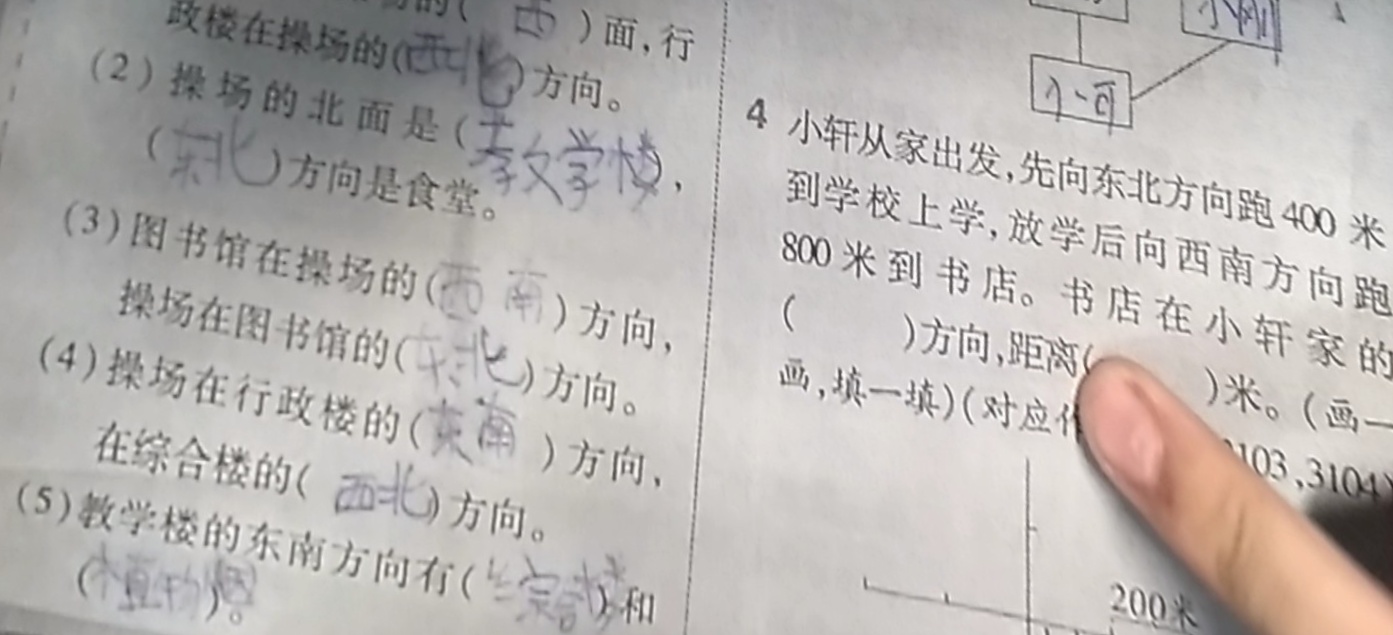 的( 西 )面,行
政楼在操场的(西北)方向。
(2)操场的北面是(教学楼),
(东北)方向是食堂。
(3)图书馆在操场的(西南)方向,
操场在图书馆的(东北)方向。
(4)操场在行政楼的(东南)方向,
在综合楼的(西北)方向。
(5)教学楼的东南方向有(综合楼)和
(植物园)。
小刚
小可
4 小轩从家出发,先向东北方向跑400米
到学校上学,放学后向西南方向跑
800米到书店。书店在小轩家的
( )方向,距离( )米。(画一
画,填一填)(对应 103,3104)
200米